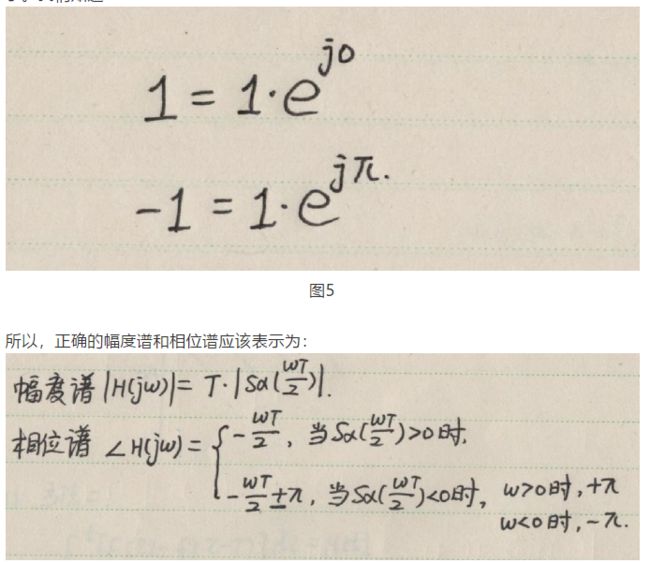 1 = 1·e^{j0}
-1 = 1·e^{jπ}.
图5
所以，正确的幅度谱和相位谱应该表示为：
幅度谱 |H(jω)| = T·|Sa(ωT/2)|.
相位谱 ∠H(jω) = { -ωT/2, 当Sa(ωT/2)>0时.
-ωT/2 ± π, 当Sa(ωT/2)<0时, ω>0时, +π
ω<0时, -π.